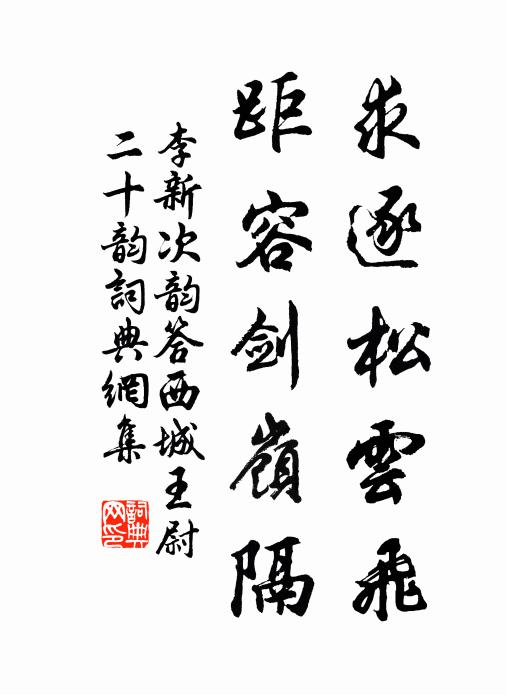 求逐松雲飛
距容剑嶺隔
李新次韵答西城王尉
二十韵詞典網集
詞典
网印